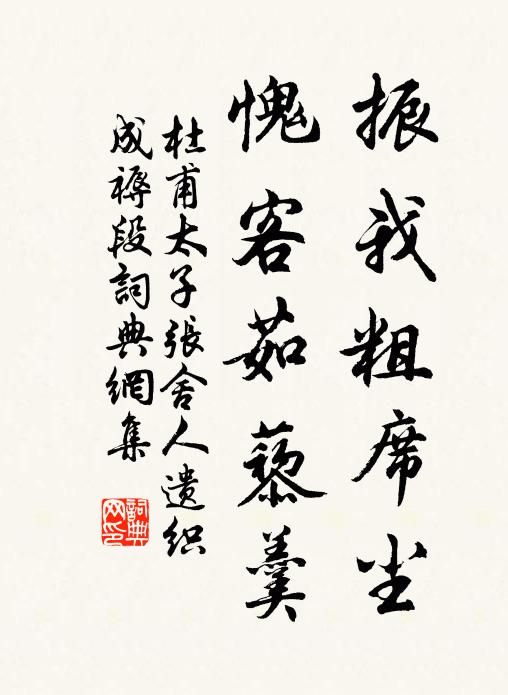 振我粗席坐
愧客茹藜羹
杜甫太子張舍人遺织
成褥段詞典網集
詞典网印